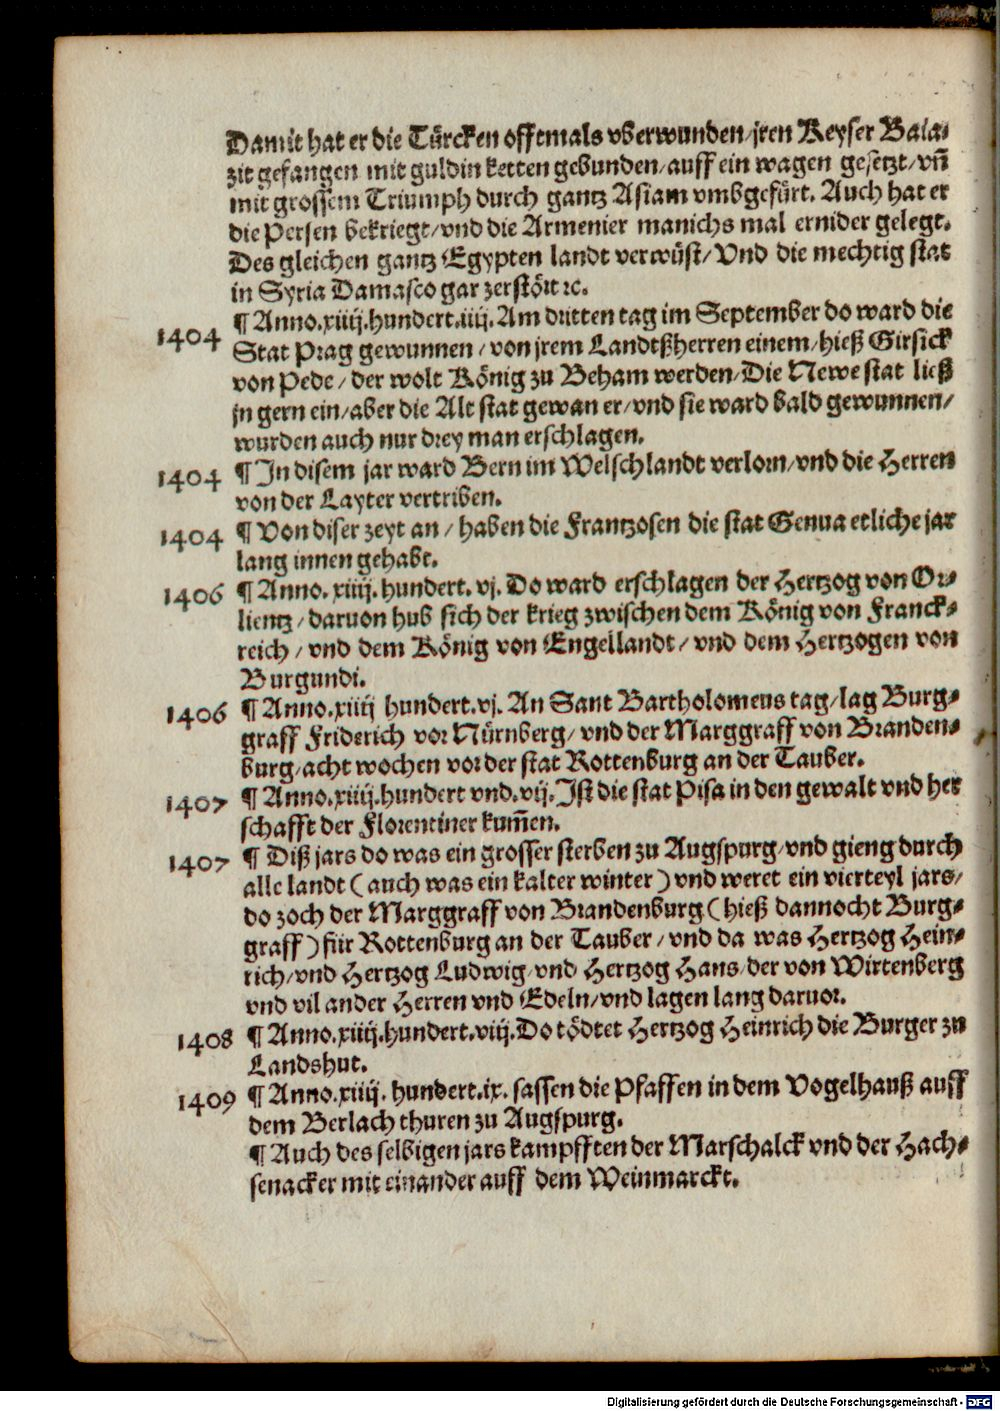 Damit hat er die Türcken offtmals vberwunden/jren Keyser Baia-
zit gefangen mit guldin ketten gebunden/auff ein wagen gesetzt/vñ
mit grossem Triumph durch gantz Asiam vmbgefürt. Auch hat er
die Persen bekriegt/vnd die Armenier manichs mal ernider gelegt.
Des gleichen gantz Egypten landt verwüst/Vnd die mechtig stat
in Syria Damasco gar zerstört ꝛc.
1404 ¶ Anno.xiiij.hundert.iiij. Am dritten tag im September do ward die
Stat Prag gewunnen/von jrem Landtßherren einem/hieß Girsick
von Pede/der wolt König zu Beham werden/Die Newe stat ließ
jn gern ein/aber die Alt stat gewan er/vnd sie ward bald gewunnen/
wurden auch nur drey man erschlagen.
1404 ¶ In disem jar ward Bern im Welschlandt verlorn/vnd die Herren
von der Layter vertriben.
1404 ¶ Von diser zeyt an/haben die Frantzosen die stat Genua etliche jar
lang innen gehabt.
1406 ¶ Anno.xiiij.hundert.vj. Do ward erschlagen der Hertzog von Or-
lientz/daruon hub sich der krieg zwischen dem König von Franck-
reich/vnd dem König von Engellandt/vnd dem Hertzogen von
Burgundi.
1406 ¶ Anno.xiiij hundert.vj. An Sant Bartholomeus tag/lag Burg-
graff Friderich vor Nürnberg/vnd der Marggraff von Branden-
burg/acht wochen vor der stat Rottenburg an der Tauber.
1407 ¶ Anno.xiiij.hundert vnd.vij. Ist die stat Pisa in den gewalt vnd her
schafft der Florentiner kum̃en.
1407 ¶ Diß jars do was ein grosser sterben zu Augspurg/vnd gieng durch
alle landt (auch was ein kalter winter) vnd weret ein vierteyl jars/
do zoch der Marggraff von Brandenburg (hieß dannocht Burg-
graff) für Rottenburg an der Tauber/vnd da was Hertzog Hein-
rich/vnd Hertzog Ludwig/vnd Hertzog Hans/der von Wirtenberg
vnd vil ander Herren vnd Edeln/vnd lagen lang daruor.
1408 ¶ Anno.xiiij.hundert.viij. Do tödtet Hertzog Heinrich die Burger zu
Landshut.
1409 ¶ Anno.xiiij. hundert.ix. sassen die Pfaffen in dem Vogelhauß auff
dem Berlach thuren zu Augspurg.
¶ Auch des selbigen jars kampfften der Marschalck vnd der Hach-
senacker mit einander auff dem Weinmarckt.
Digitalisierung gefördert durch die Deutsche Forschungsgemeinschaft - DFG